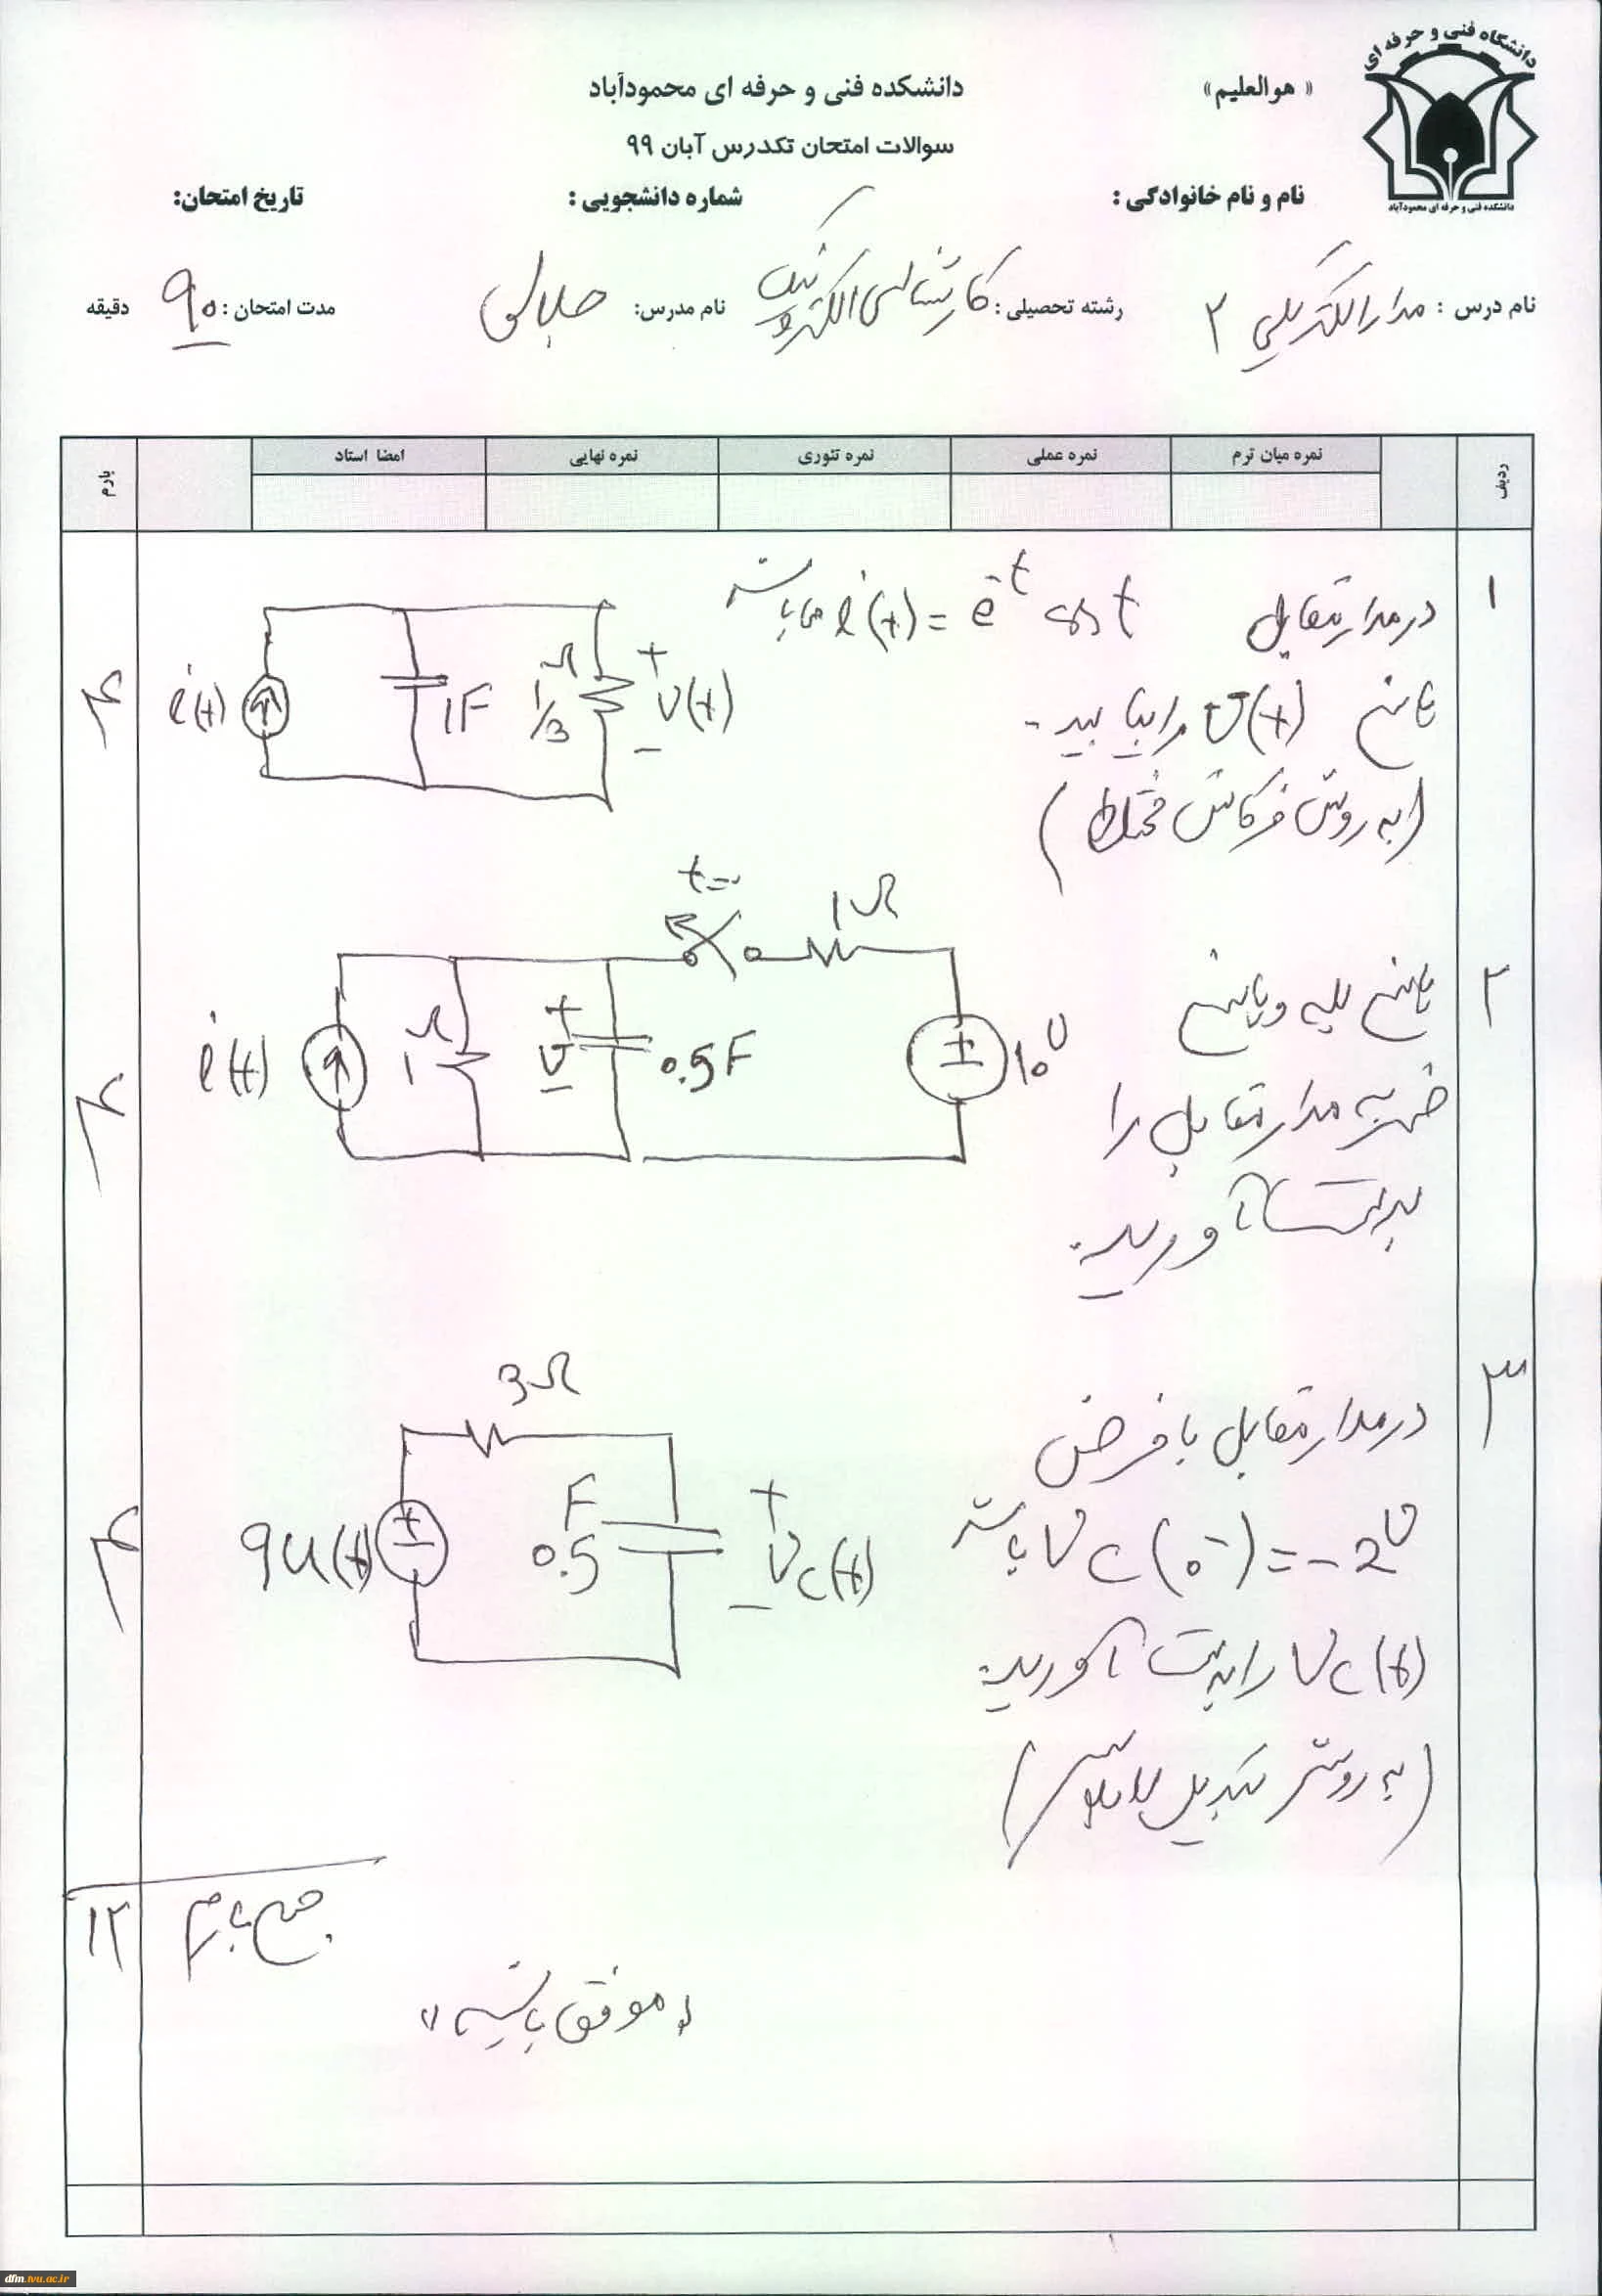 دانشگاه فنی و حرفه ای
دانشکده فنی و حرفه ای محمودآباد
« هوالعلیم»
دانشکده فنی و حرفه ای محمودآباد
سوالات امتحان تکدرس آبان ۹۹
نام و نام خانوادگی :
شماره دانشجویی :
تاریخ امتحان:
نام درس : مدار الکتریکی ۲
رشته تحصیلی : کارشناسی الکترونیک
نام مدرس: جلالی
مدت امتحان : ۹۰ دقیقه
ردیف
نمره میان ترم
نمره عملی
نمره تئوری
نمره نهایی
امضا استاد
بارم
۱
در مدار مقابل i(t) = e^-t cos t باشد
پاسخ v(t) را بیابید.
(به روش فرکانس مختلط)
i(t)
1F
1/3 Ω
+
v(t)
-
۴
۲
پاسخ پله و پاسخ
ضربه مدار مقابل را
بدست آورید.
t=0
1Ω
i(t)
1Ω
+
v
-
0.5F
10V
۴
۳
در مدار مقابل با فرض
Vc(0-) = -2V باشد
Vc(t) را بدست آورید.
(به روش تبدیل لاپلاس)
3Ω
9u(t)
F
0.5
+
Vc(t)
-
۴
جمع بارم
۱۲
«موفق باشید»
dfm.tvu.ac.ir